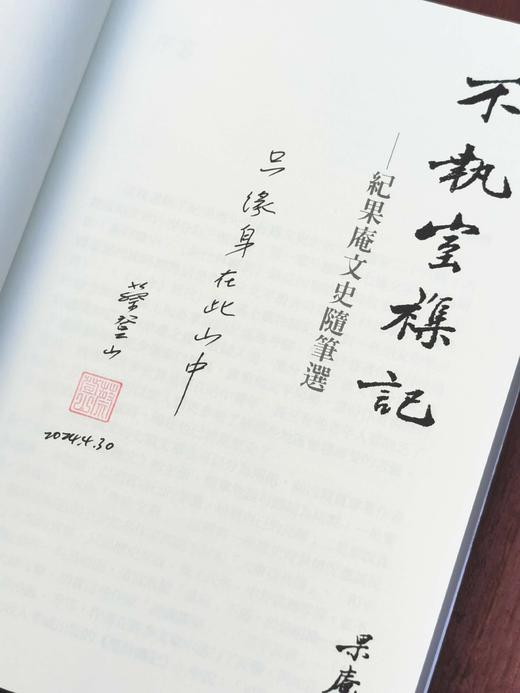 不執室襍記
——紀果庵文史隨筆選
只緣身在此山中
蔡登山
2024.4.30
果庵